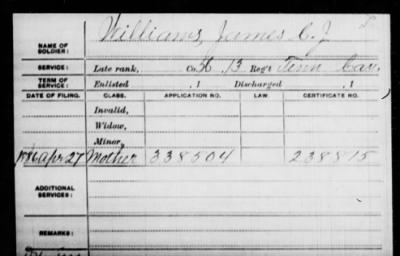 NAME OF SOLDIER: Williams, James C. J.
SERVICE: Late rank, Co. 13 Reg't Tenn Cav.
TERM OF SERVICE: Enlisted , 1 Discharged , 1
DATE OF FILING. CLASS. APPLICATION NO. LAW. CERTIFICATE NO.
Invalid,
Widow,
Minor,
Apr 27 Mother 338504 238815
ADDITIONAL SERVICES: